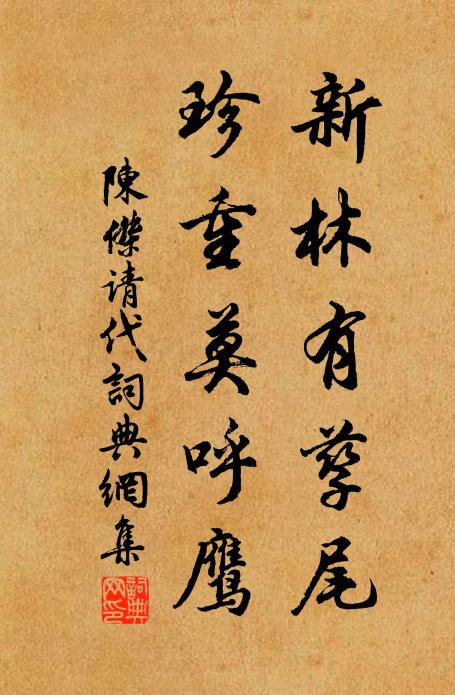 新林有孳尾
珍重莫呼鹰
陳傑请代詞典網集
詞典網印